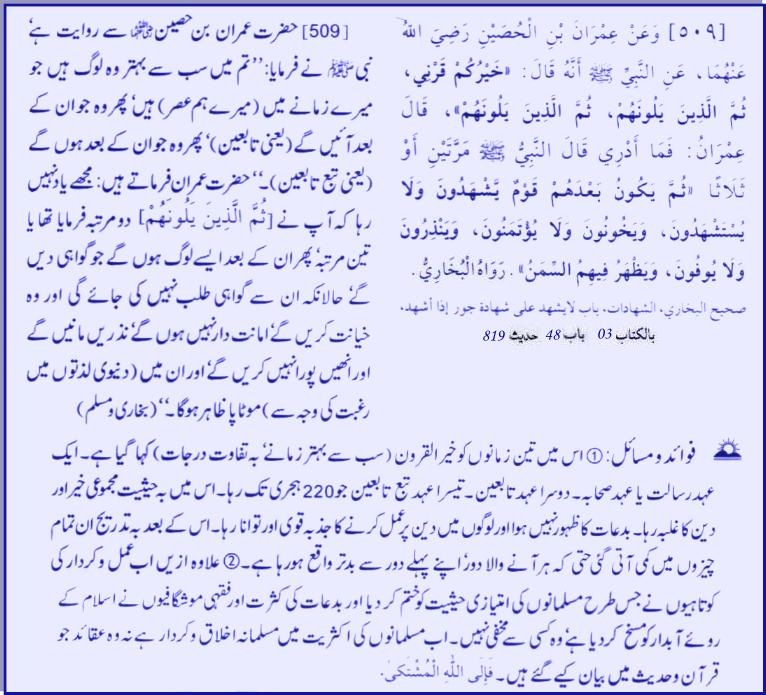 [٥٠٩] وَعَنْ عِمْرَانَ بْنِ الْحُصَيْنِ رَضِيَ اللهُ
عَنْهُمَا، عَنِ النَّبِيِّ ﷺ أَنَّهُ قَالَ: «خَيْرُكُمْ قَرْنِي،
ثُمَّ الَّذِينَ يَلُونَهُمْ، ثُمَّ الَّذِينَ يَلُونَهُمْ»، قَالَ
عِمْرَانُ: فَمَا أَدْرِي قَالَ النَّبِيُّ ﷺ مَرَّتَيْنِ أَوْ
ثَلَاثًا «ثُمَّ يَكُونُ بَعْدَهُمْ قَوْمٌ يَشْهَدُونَ وَلَا
يُسْتَشْهَدُونَ، وَيَخُونُونَ وَلَا يُؤْتَمَنُونَ، وَيَنْذِرُونَ
وَلَا يُوفُونَ، وَيَظْهَرُ فِيهِمُ السِّمَنُ». رَوَاهُ الْبُخَارِيُّ.
صحيح البخاري، الشهادات، باب لايشهد على شهادة جور إذا أشهد،
بالكتاب 03 باب 48 حديث 819
[509] حضرت عمران بن حصین ﷠ سے روایت ہے،
نبی ﷺ نے فرمایا: ’’تم میں سب سے بہتر وہ لوگ ہیں جو
میرے زمانے میں (میرے ہم عصر) ہیں، پھر وہ جو ان کے
بعد آئیں گے (یعنی تابعین)، پھر وہ جو ان کے بعد ہوں گے
(یعنی تبع تابعین)۔‘‘ حضرت عمران فرماتے ہیں: مجھے یاد نہیں
رہا کہ آپ نے [ثُمَّ الَّذِينَ يَلُونَهُمْ] دو مرتبہ فرمایا تھا یا
تین مرتبہ، پھر ان کے بعد ایسے لوگ ہوں گے جو گواہی دیں
گے، حالانکہ ان سے گواہی طلب نہیں کی جائے گی اور وہ
خیانت کریں گے، امانت دار نہیں ہوں گے، نذریں مانیں گے
اور انھیں پورا نہیں کریں گے، اور ان میں (دنیوی لذتوں میں
رغبت کی وجہ سے) موٹاپا ظاہر ہوگا۔‘‘ (بخاری و مسلم)
فوائد و مسائل: ① اس میں تین زمانوں کو خیر القرون (سب سے بہتر زمانے، بہ تفاوت درجات) کہا گیا ہے۔ ایک
عہد رسالت یا عہد صحابہ۔ دوسرا عہد تابعین۔ تیسرا عہد تبع تابعین جو 220 ہجری تک رہا۔ اس میں بہ حیثیت مجموعی خیر اور
دین کا غلبہ رہا۔ بدعات کا ظہور نہیں ہوا اور لوگوں میں دین پر عمل کرنے کا جذبہ قوی اور توانا رہا۔ اس کے بعد بہ تدریج ان تمام
چیزوں میں کمی آتی گئی حتی کہ ہر آنے والا دور، اپنے پہلے دور سے بدتر واقع ہو رہا ہے۔ ② علاوہ ازیں اب عمل و کردار کی
کوتاہیوں نے جس طرح مسلمانوں کی امتیازی حیثیت کو ختم کر دیا اور بدعات کی کثرت اور فقہی موشگافیوں نے اسلام کے
روئے آبدار کو مسخ کر دیا ہے، وہ کسی سے مخفی نہیں۔ اب مسلمانوں کی اکثریت میں مسلمانہ اخلاق و کردار ہے نہ وہ عقائد جو
قرآن و حدیث میں بیان کیے گئے ہیں۔ فَإِلَى اللهِ الْمُشْتَكىٰ.